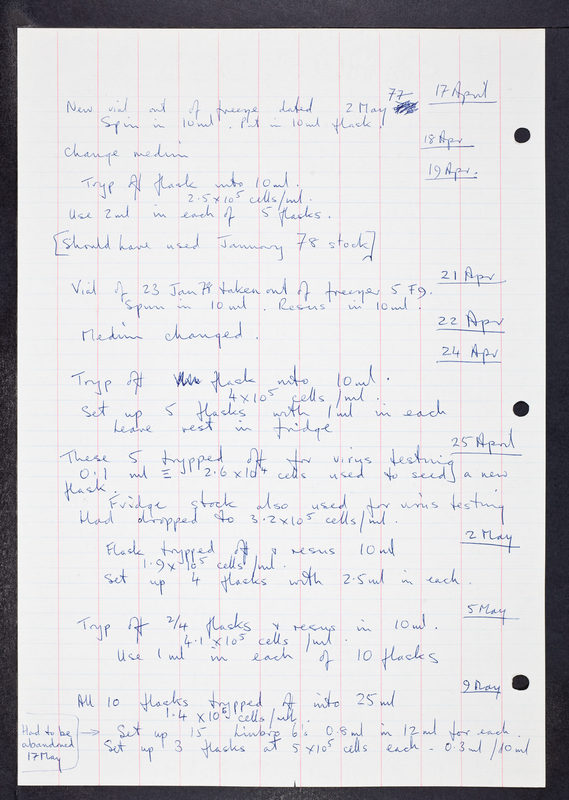 17 April
New vial out of freezer dated 2 May 77
Spin in 10ml. Put in 10ml flask.
18 Apr
Change medium
19 Apr.
Tryp off flask into 10ml.
2.5 x 10⁵ cells/ml.
Use 2ml in each of 5 flasks.
[Should have used January 78 stock]
21 Apr
Vial of 23 Jan 78 taken out of freezer 5 F9.
Spun in 10ml. Resus in 10ml.
22 Apr
Medium changed.
24 Apr
Tryp off flask into 10ml.
4 x 10⁵ cells/ml.
Set up 5 flasks with 1ml in each
Leave rest in fridge
25 April
These 5 trypped off for virus testing
0.1 ml ≡ 2.6 x 10⁴ cells used to seed a new
flask.
Fridge stock also used for virus testing
Had dropped to 3.2 x 10⁵ cells/ml.
2 May
Flask trypped off & resus 10ml
1.9 x 10⁵ cells/ml.
Set up 4 flasks with 2.5ml in each.
5 May
Tryp off 2/4 flasks & resus in 10ml.
4.1 x 10⁵ cells/ml.
Use 1ml in each of 10 flasks
9 May
All 10 flasks trypped off into 25ml
1.4 x 10⁶ cells/ml.
Had to be abandoned 17 May → Set up 15 Linbro 6's 0.8ml in 12ml for each.
Set up 3 flasks at 5 x 10⁵ cells each - 0.3ml/10ml